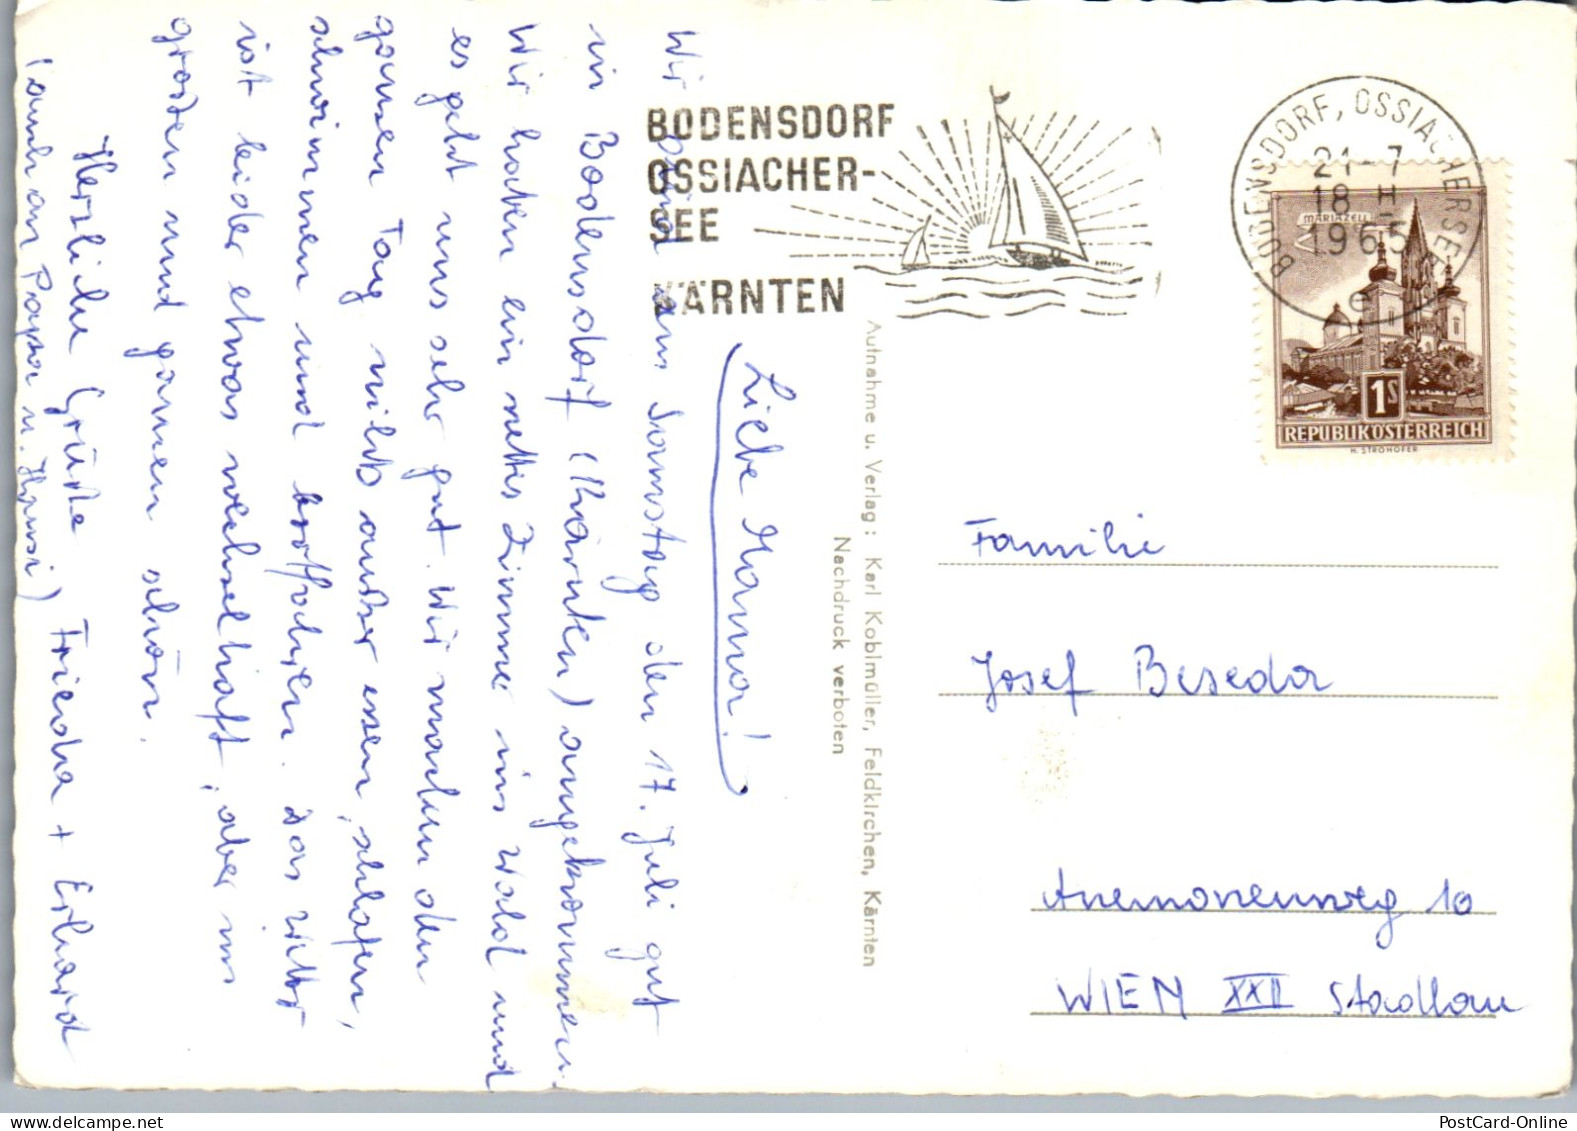 Liebe Mama!
Wir sind am Samstag den 17. Juli gut
in Bodensdorf (Kärnten) angekommen.
Wir haben ein nettes Zimmer im Wald und
es geht uns sehr gut. Wir machen den
ganzen Tag nichts außer essen, schlafen,
schwimmen und bootfahren. Das Wetter
ist leider etwas wechselhaft, aber im
großen und ganzen schön.
Herzliche Grüße Frieda + Erhard
(auch an Papa u. Hansi)
BODENSDORF
OSSIACHER-
SEE
KÄRNTEN
BODENSDORF, OSSIACHERSEE
21-7
18 H
1965
e
MARIAZELL
1S
REPUBLIK ÖSTERREICH
H. STROHOFER
Aufnahme u. Verlag: Karl Koblmüller, Feldkirchen, Kärnten
Nachdruck verboten
Familie
Josef Beseda
Anemonenweg 10
WIEN XXII Stadlau
PostCard-Online